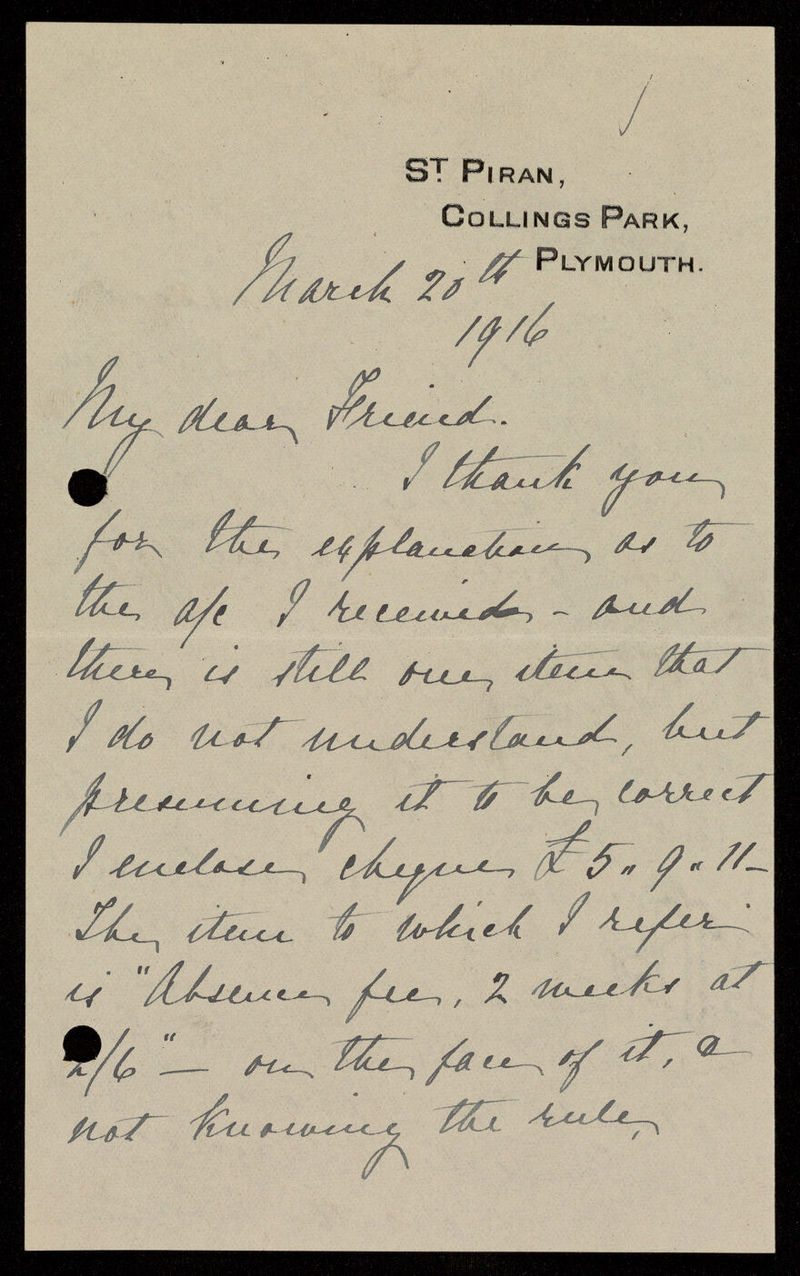 ST. PIRAN,
COLLINGS PARK,
PLYMOUTH.
March 20th
1916
My dear Friend.
I thank you
for the explanation as to
the a/c I received - and
there is still one item that
I do not understand, but
presuming it to be correct
I enclose cheque £5" 9" 11-
The item to which I refer
is "Absence fee, 2 weeks at
2/6" — on the face of it, &
not knowing the rule,